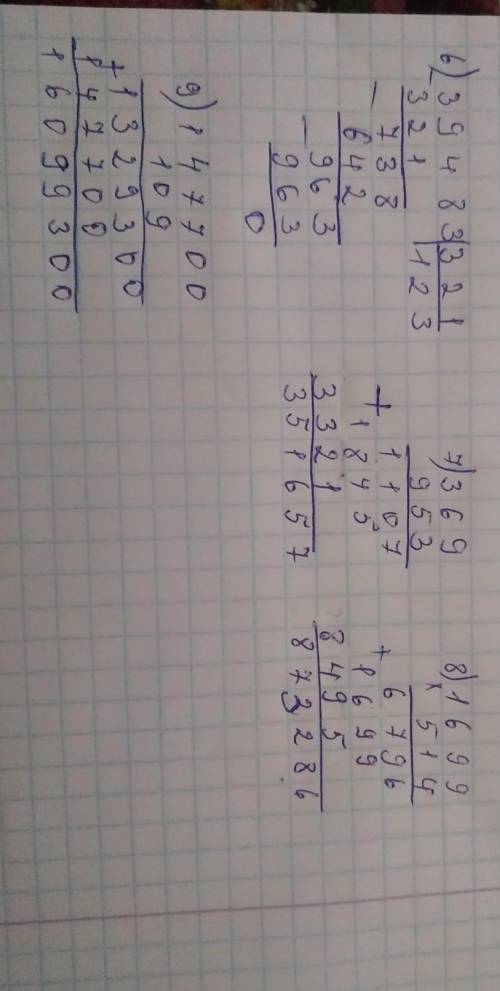 6) 39483 | 321
321 | 123
- 738
642
- 963
963
0
7) 369
953
1107
+ 1845
3321
351657
8) 1699
x 514
6796
+ 1699
8495
873286
9) 147700
109
1329300
+ 147700
16099300